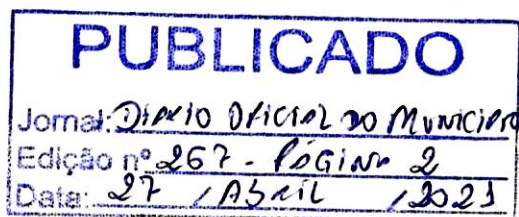 PUBLICADO
Jornal: DIARIO OFICIAL DO MUNICIPIO
Edição nº 267 - PÁGINA 2
Data: 27 / ABRIL / 2021